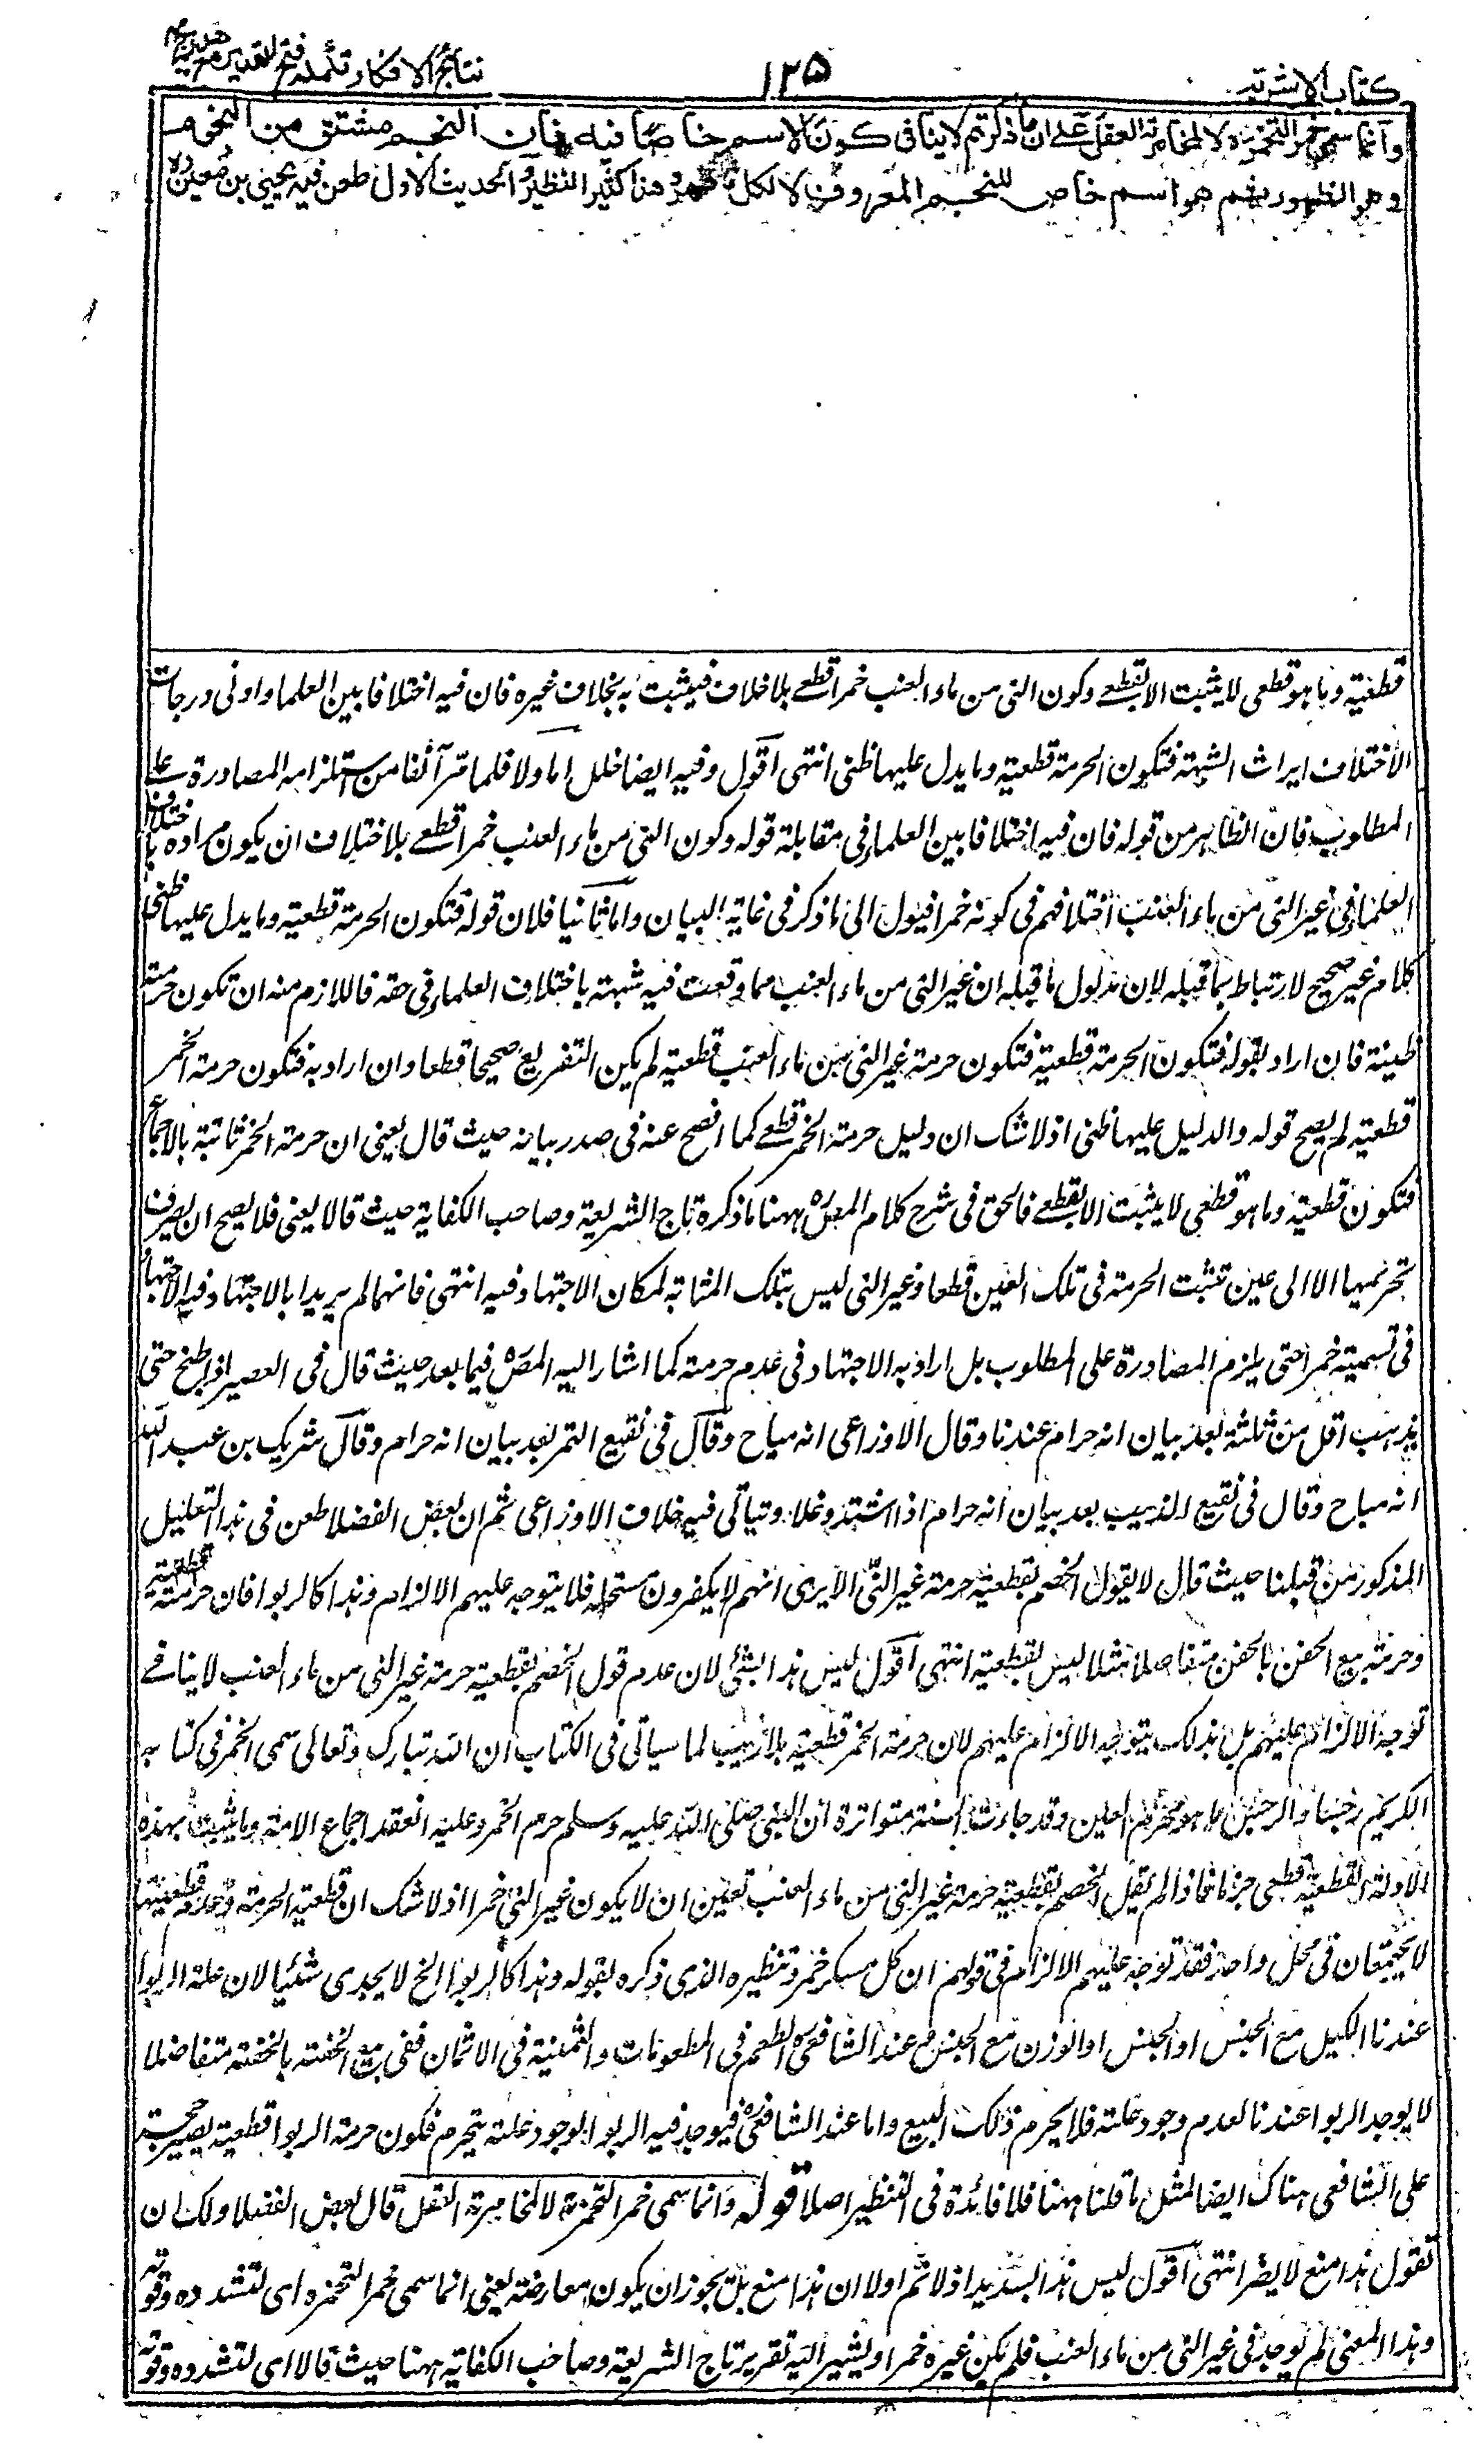 كتاب الاشربة
١٢٥
نتائج الافكار تكملة فتح القدير مع هداية
وانما سمى خمرا لتخمره لا لمخامرته العقل على ان ما ذكرتم لا ينافى كون الاسم خاصا فيه فان النجم مشتق من النجوم
وهو الظهور ثم هو اسم خاص للنجم المعروف لا لكل ما ظهر وهذا كثير النظير والحديث الاول طعن فيه يحيى بن معين ره
قطعية وما هو قطعى لا يثبت الا بقطعے وكون النى من ماء العنب خمرا قطعے بلا خلاف فيثبت به بخلاف غيره فان فيه اختلافا بين العلماء وادنى درجات
الاختلاف ايراث الشبهة فتكون الحرمة قطعية وما يدل عليها ظنى انتهى اقول وفيه ايضا خلل اما اولا فلما مر آنفا من استلزامه المصادرة على
المطلوب فان الظاهر من قوله فان فيه اختلافا بين العلماء فى مقابلة قوله وكون النى من ماء العنب خمرا قطعے بلا اختلاف ان يكون مراده باختلاف
العلماء فى غير النى من ماء العنب اختلافهم فى كونه خمرا فيول الى ما ذكر فى غاية البيان واما ثانيا فلان قوله فتكون الحرمة قطعية وما يدل عليها ظنى
كلام غير صحيح لا ارتباط بما قبله لان مدلول ما قبله ان غير النى من ماء العنب مما وقعت فيه شبهة باختلاف العلماء فى حقه فاللازم منه ان تكون حرمته
ظنية فان اراد بقوله فتكون الحرمة قطعية فتكون حرمة غير النى من ماء العنب قطعية لم يكن التفريع صحيحا قطعا وان اراد به فتكون حرمة الخمر
قطعية لم يصح قوله والدليل عليها ظنى اذ لا شك ان دليل حرمة الخمر قطعے كما افصح عنه فى صدر بيانه حيث قال يعنى ان حرمة الخمر ثابتة بالاجماع
فتكون قطعية وما هو قطعى لا يثبت الا بقطعے فالحق فى شرح كلام المصره ههنا ما ذكره تاج الشريعة وصاحب الكفاية حيث قالا يعنى فلا يصح ان يصرف
تحريمها الا الى عين تثبت الحرمة فى تلك العين قطعا وغير النى ليس بتلك المثابة لمكان الاجتهاد فيه انتهى فانهما لم يريدا بالاجتهاد فيه الاجتهاد
فى تسميته خمرا حتى يلزم المصادرة على المطلوب بل ارادا به الاجتهاد فى عدم حرمته كما اشار اليه المصره فيما بعد حيث قال فى العصير اذا طبخ حتى
يذهب اقل من ثلثيه بعد بيان انه حرام عندنا وقال الاوزاعى انه مباح وقال فى نقيع التمر بعد بيان انه حرام وقال شريك بن عبد الله
انه مباح وقال فى نقيع الزبيب بعد بيان انه حرام اذا اشتد وغلا ويتأتى فيه خلاف الاوزاعى ثم ان بعض الفضلا طعن فى هذا التعليل
المذكور من قبلنا حيث قال لا يقول الخصم بقطعية حرمة غير النى الا يرى انهم لا يكفرون مستحله فلا يتوجه عليهم الالزام وهذا كالربوا فان حرمته قطعية
وحرمة بيع الحفن بالحفن متفاضلا مثلا ليس بقطعية انتهى اقول ليس هذا بشئ لان عدم قول الخصم بقطعية حرمة غير النى من ماء العنب لا ينافے
توجه الالزام عليهم بل بذلك يتوجه الالزام عليهم لان حرمة الخمر قطعية بلا ريب لما سيأتى فى الكتاب ان الله تبارك وتعالى سمى الخمر فى كتابه
الكريم رجسا والرجس ما هو محرم العين وقد جاءت السنة متواترة ان النبى صلى الله عليه وسلم حرم الخمر وعليه انعقد اجماع الامة وما يثبت بهذه
الادلة القطعية قطعى جزما فاذا لم يقل الخصم بقطعية حرمة غير النى من ماء العنب تعين ان لا يكون غير النى خمرا اذ لا شك ان قطعية الحرمة وعدم قطعيتها
لا يجتمعان فى محل واحد فقد توجه عليهم الالزام فى قولهم ان كل مسكر خمر وتنظيره الذى ذكره بقوله وهذا كالربوا الخ لا يجدى شيئا لان علة الربوا
عندنا الكيل مع الجنس او الوزن مع الجنس وعند الشافعى ره الطعم فى المطعومات والثمنية فى الاثمان ففى بيع الحفنة بالحفنة متفاضلا
لا يوجد الربوا عندنا لعدم وجود علته فلا يحرم ذلك البيع واما عند الشافعى ره فيوجد فيه الربوا لوجود علته فيحرم فكون حرمة الربوا قطعية يصير حجة
على الشافعى هناك ايضا لمثل ما قلنا ههنا فلا فائدة فى التنظير اصلا قوله وانما سمى خمرا لتخمره لا لمخامرة العقل قال بعض الفضلا ولك ان
تقول هذا منع لا يضر انتهى اقول ليس هذا بسديد اذ لا ثم اولا ان هذا منع بل يجوز ان يكون معارضة يعنى انما سمى خمرا لتخمره اى لتشدده وقوته
وهذا المعنى لم يوجد فى غير النى من ماء العنب فلم يكن غيره خمرا ويشير اليه تقرير تاج الشريعة وصاحب الكفاية ههنا حيث قالا اى لتشدده وقوته